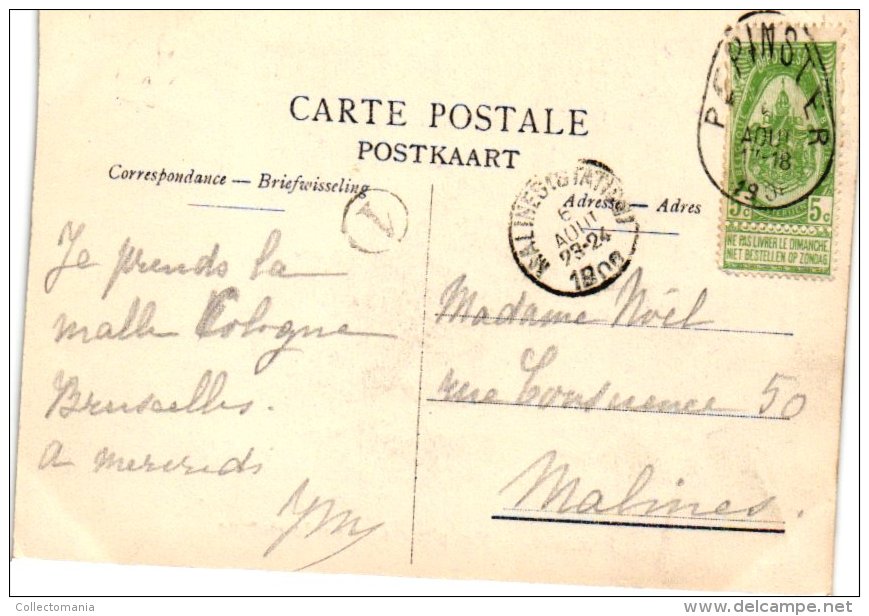 CARTE POSTALE
POSTKAART
Correspondance — Briefwisseling
Adresse — Adres
PEPINSTER
6
AOUT
17-18
MALINES (STATION)
6
AOUT
23-24
1
5c 5c
NE PAS LIVRER LE DIMANCHE
NIET BESTELLEN OP ZONDAG
Je prends la
malle Cologne
Bruxelles.
A mercredi
Madame Noël
rue 50
Malines.
© Collectomania
delcampe.net